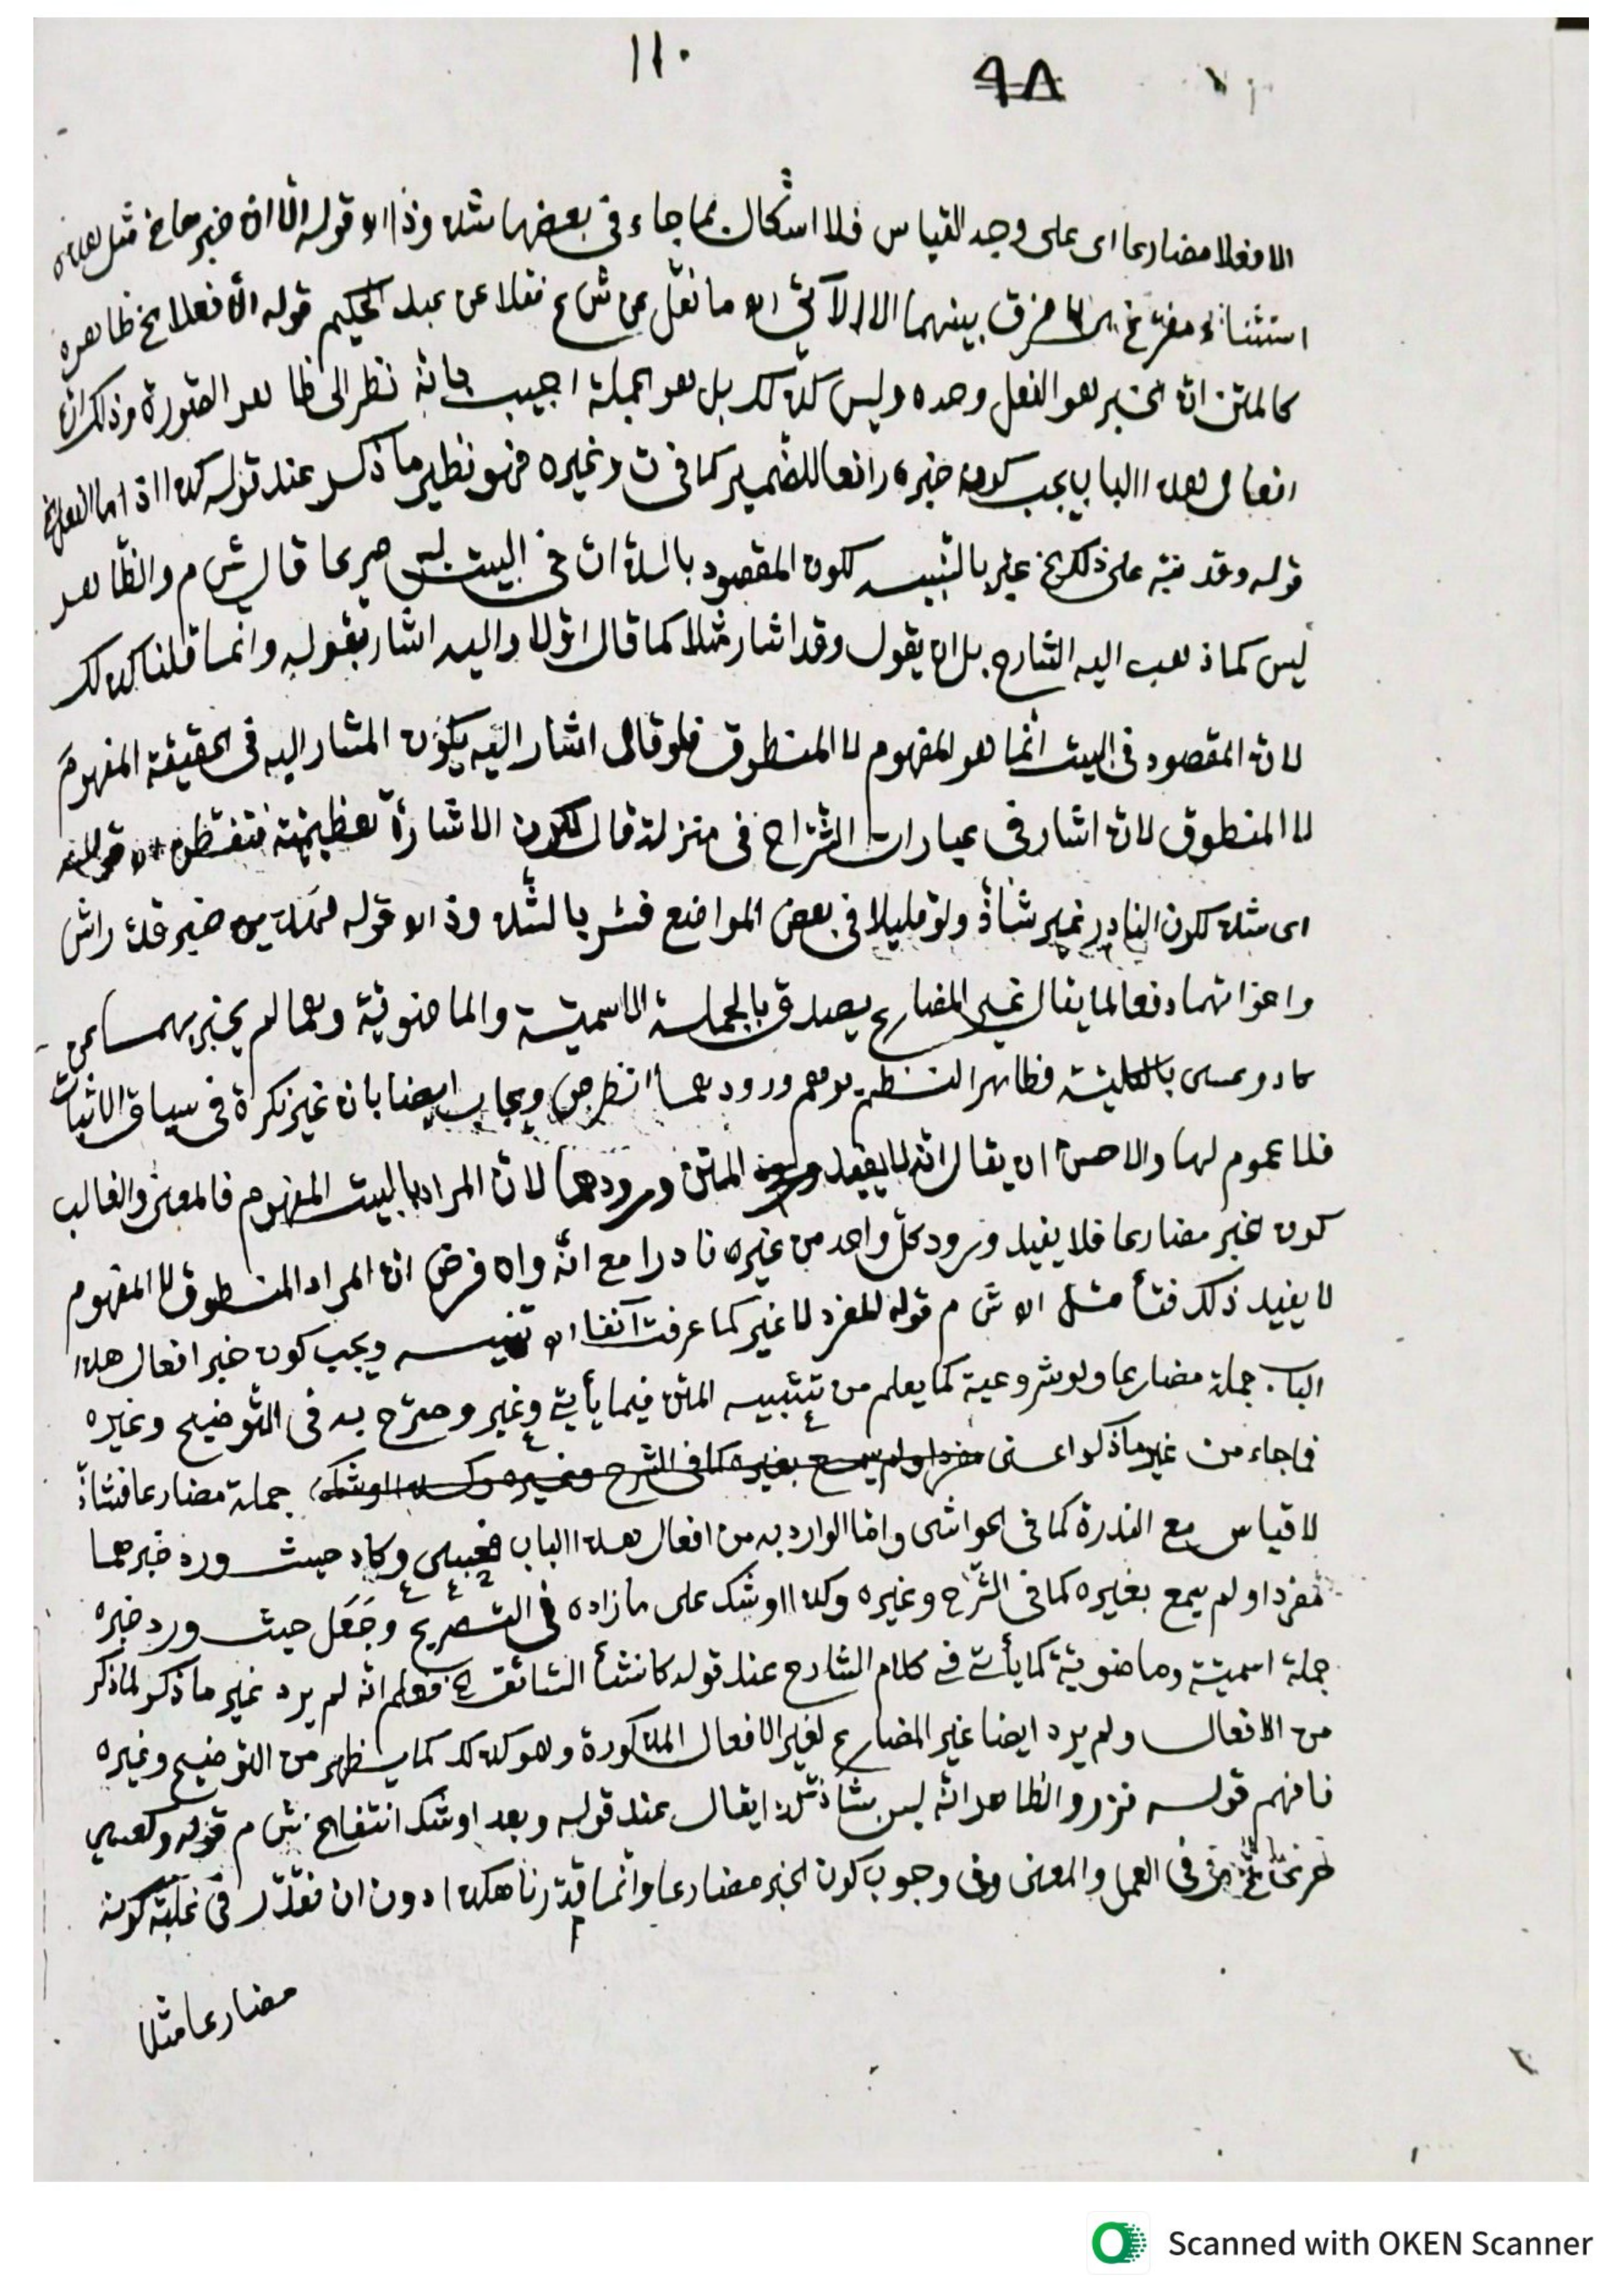 ١١٠
٩٨
الا فعلا مضارعا اى على وجه القياس فلا اشكال بما جاء فى بعضها مثله وذا قوله الا ان خبرهما الخ مثل هذه
استثناء مفرغ فرق بينهما الا الآتى ما نقل عن ش ع نقلا عن عبد الحكيم قوله الا فعلا الخ ظاهره
كالمتن ان الخبر هو الفعل وحده وليس كذلك بل هو الجملة اجيب بانه نظر الى ظاهر الصورة وذلك ان
افعال هذا الباب يجب كون خبره رافعا للضمير كما فى ش وغيره فهو نظير ما ذكر عند قوله كذا اذا ما الفعل الخ
قوله وقد نبه على ذلك الخ عبر بالتنبيه لكون المقصود بالذات فى البيت ليس صريحا قال ش م والظاهر
ليس كما ذهب اليه الشارح بل ان يقول وقد اشار مثلا كما قال اولا واليه اشار بقوله وانما قلنا كذلك
لان المقصود فى البيت انما هو المفهوم لا المنطوق فلو قال اشار اليه يكون المشار اليه فى الحقيقة المفهوم
لا المنطوق لان اشار فى عبارات الشراح فى منزلة قال لكون الاشارة لفظيته فتفطن
اى مثله لكون النادر غير شاذ ولو قليلا فى بعض المواضع فسر بالمثل وذا قوله لهذين خبر قدر اش
واخواتهما دفعا لما يقال غير المضارع يصدق بالجملة الاسمية والماضوية وهما لم يخبر بهما عن
كاد وعسى بالكلية فظاهر النظم يوهم ورودهما انظر ص ويجاب ايضا بان غير نكرة فى سياق الاثبات
فلا عموم لها والاحسن ان يقال انه لا يفيد المتن ورودهما لان المراد بالبيت المفهوم فالمعنى والغالب
كون الخبر مضارعا فلا يفيد ورود كل واحد من غيره نادرا مع انه وان فرض ان المراد المنطوق لا المفهوم
لا يفيد ذلك فتأمل ش م قوله المفرد لا غير كما عرفت آنفا تنبيه ويجب كون خبر افعال هذا
الباب جملة مضارعا ولو شروعية كما يعلم من تنبيه المتن فيما يأتى وغير وصرح به فى التوضيح وغيره
فما جاء من غير ما ذكر اعنى مفردا ولم يسمع بغيره كما فى الشرح وغيره وكذا اوشك جملة مضارعا فشاذ
لا قياس مع الندرة كما فى الحواشى واما الوارد به من افعال هذا الباب فعسى وكاد حيث ورد خبرهما
مفردا ولم يسمع بغيره كما فى الشرح وغيره وكذا اوشك على ما زاده فى التصريح وجعل حيث ورد خبره
جملة اسمية وماضوية كما يأتى فى كلام الشارح عند قوله كانشأ السائق الخ فعلم انه لم يرد غير ما ذكر لما ذكر
من الافعال ولم يرد ايضا غير المضارع لغير الافعال المذكورة وهو كذلك كما يظهر من التوضيح وغيره
فافهم قوله نزر والظاهر انه ليس بشاذ يقال عند قوله وبعد اوشك انتفا الخ ش م قوله وكعسى
حرى الخ فى العمل والمعنى وفى وجوب كون الخبر مضارعا وانما قدرنا هكذا دون ان نقدر فى غلبة كونه
مضارعا مثلا
Scanned with OKEN Scanner